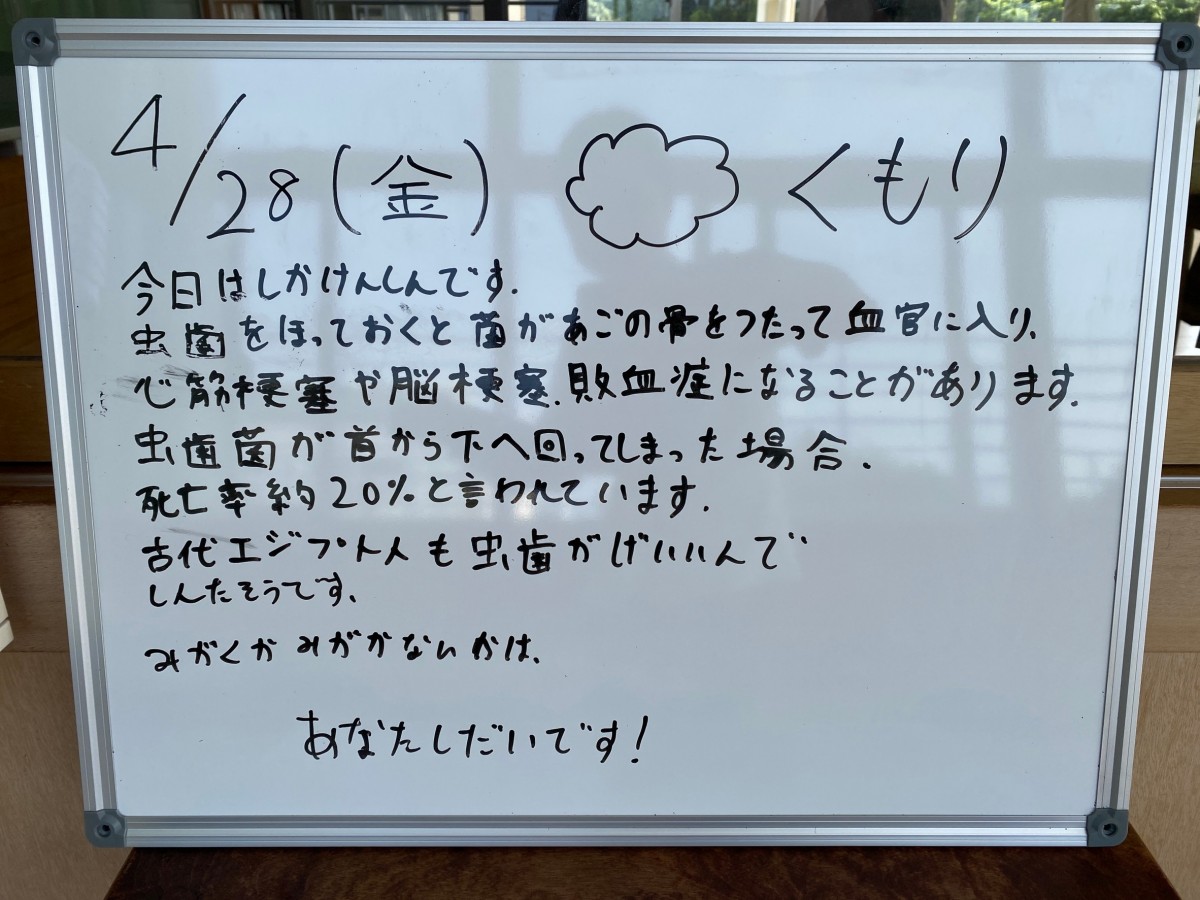 4/28(金) くもり
今日はしかけんしんです.
虫歯をほっておくと菌があごの骨をつたって血官に入り、
心筋梗塞や脳梗塞、敗血症になることがあります.
虫歯菌が首から下へ回ってしまった場合、
死亡率約20%と言われています.
古代エジプト人も虫歯がげいいんで
しんたそうです、
みがくかみがかないかは、
あなたしだいです!